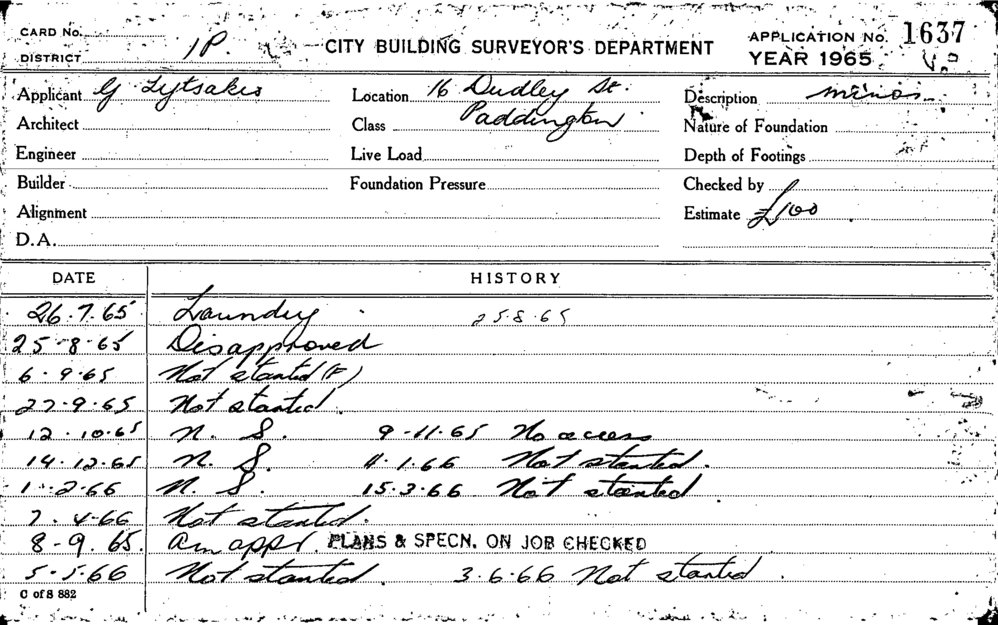 CARD No.
DISTRICT 1P.
CITY BUILDING SURVEYOR'S DEPARTMENT
APPLICATION No. 1637
YEAR 1965
Applicant G Lytsakis
Location 16 Dudley St.
Paddington
Description minor
Architect
Class
Nature of Foundation
Engineer
Live Load
Depth of Footings
Builder
Foundation Pressure
Checked by
Alignment
Estimate £100
D.A.
DATE HISTORY
26.7.65 Laundry 25.8.65
25-8-65 Disapproved
6.9.65 Not started (F)
27.9.65 Not started.
12.10.65 N. S. 9-11-65 No access
14.12.65 N. S. 11.1.66 Not started.
1-2-66 N. S. 15.3.66 Not started
7.4-66 Not started.
8-9.65. Am appl. PLANS & SPECN. ON JOB CHECKED
5-5.66 Not started. 3.6.66 Not started.
C of S 882